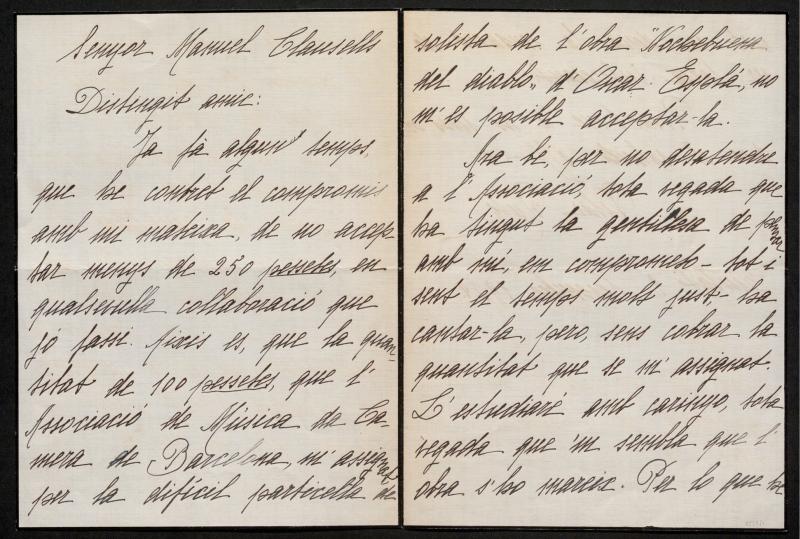 Senyor Manuel Clausells
Distingit amic:
Ja fà algun's temps,
que he contret el compromis
amb mi mateixa, de no accep
tar menys de 250 pessetes, en
qualsevulla collaboració que
jo fassi. Aixis es, que la quan-
titat de 100 pessetes, que l'
Associació de Música da Ca-
mera de Barcelona, m'assignat
per la difícil particella de
solista de l'obra "Nochebuena
del diablo" d'Oscar Esplá, no
m'es posible acceptar-la.
Ara bé, per no desatendre
a l'Associació, tota vegada que
ha tingut la gentillesa de pensar
amb mi, em comprometo - tot i
sent el temps molt just - ha
cantar-la, pero, sens cobrar la
quantitat que se m'assignat.
L'estudiaré amb carinyo, tota
vegada que 'm sembla que l'
obra s'ho mareix. Per lo que he